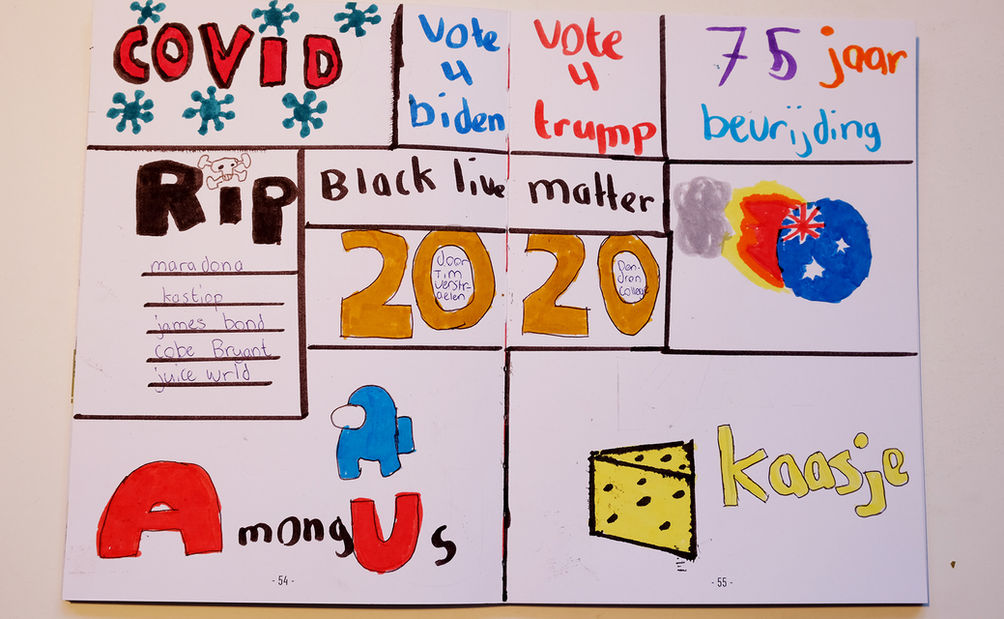 COVID
Vote
4
biden
Vote
4
trump
75 jaar
bevrijding
Rip
maradona
kastiop
james bond
cobe Bryant
juice wrld
Black live matter
2020
door
Tim
verstr-
aelen
Don-
dron
college
Among Us
kaasje
- 54 -
- 55 -